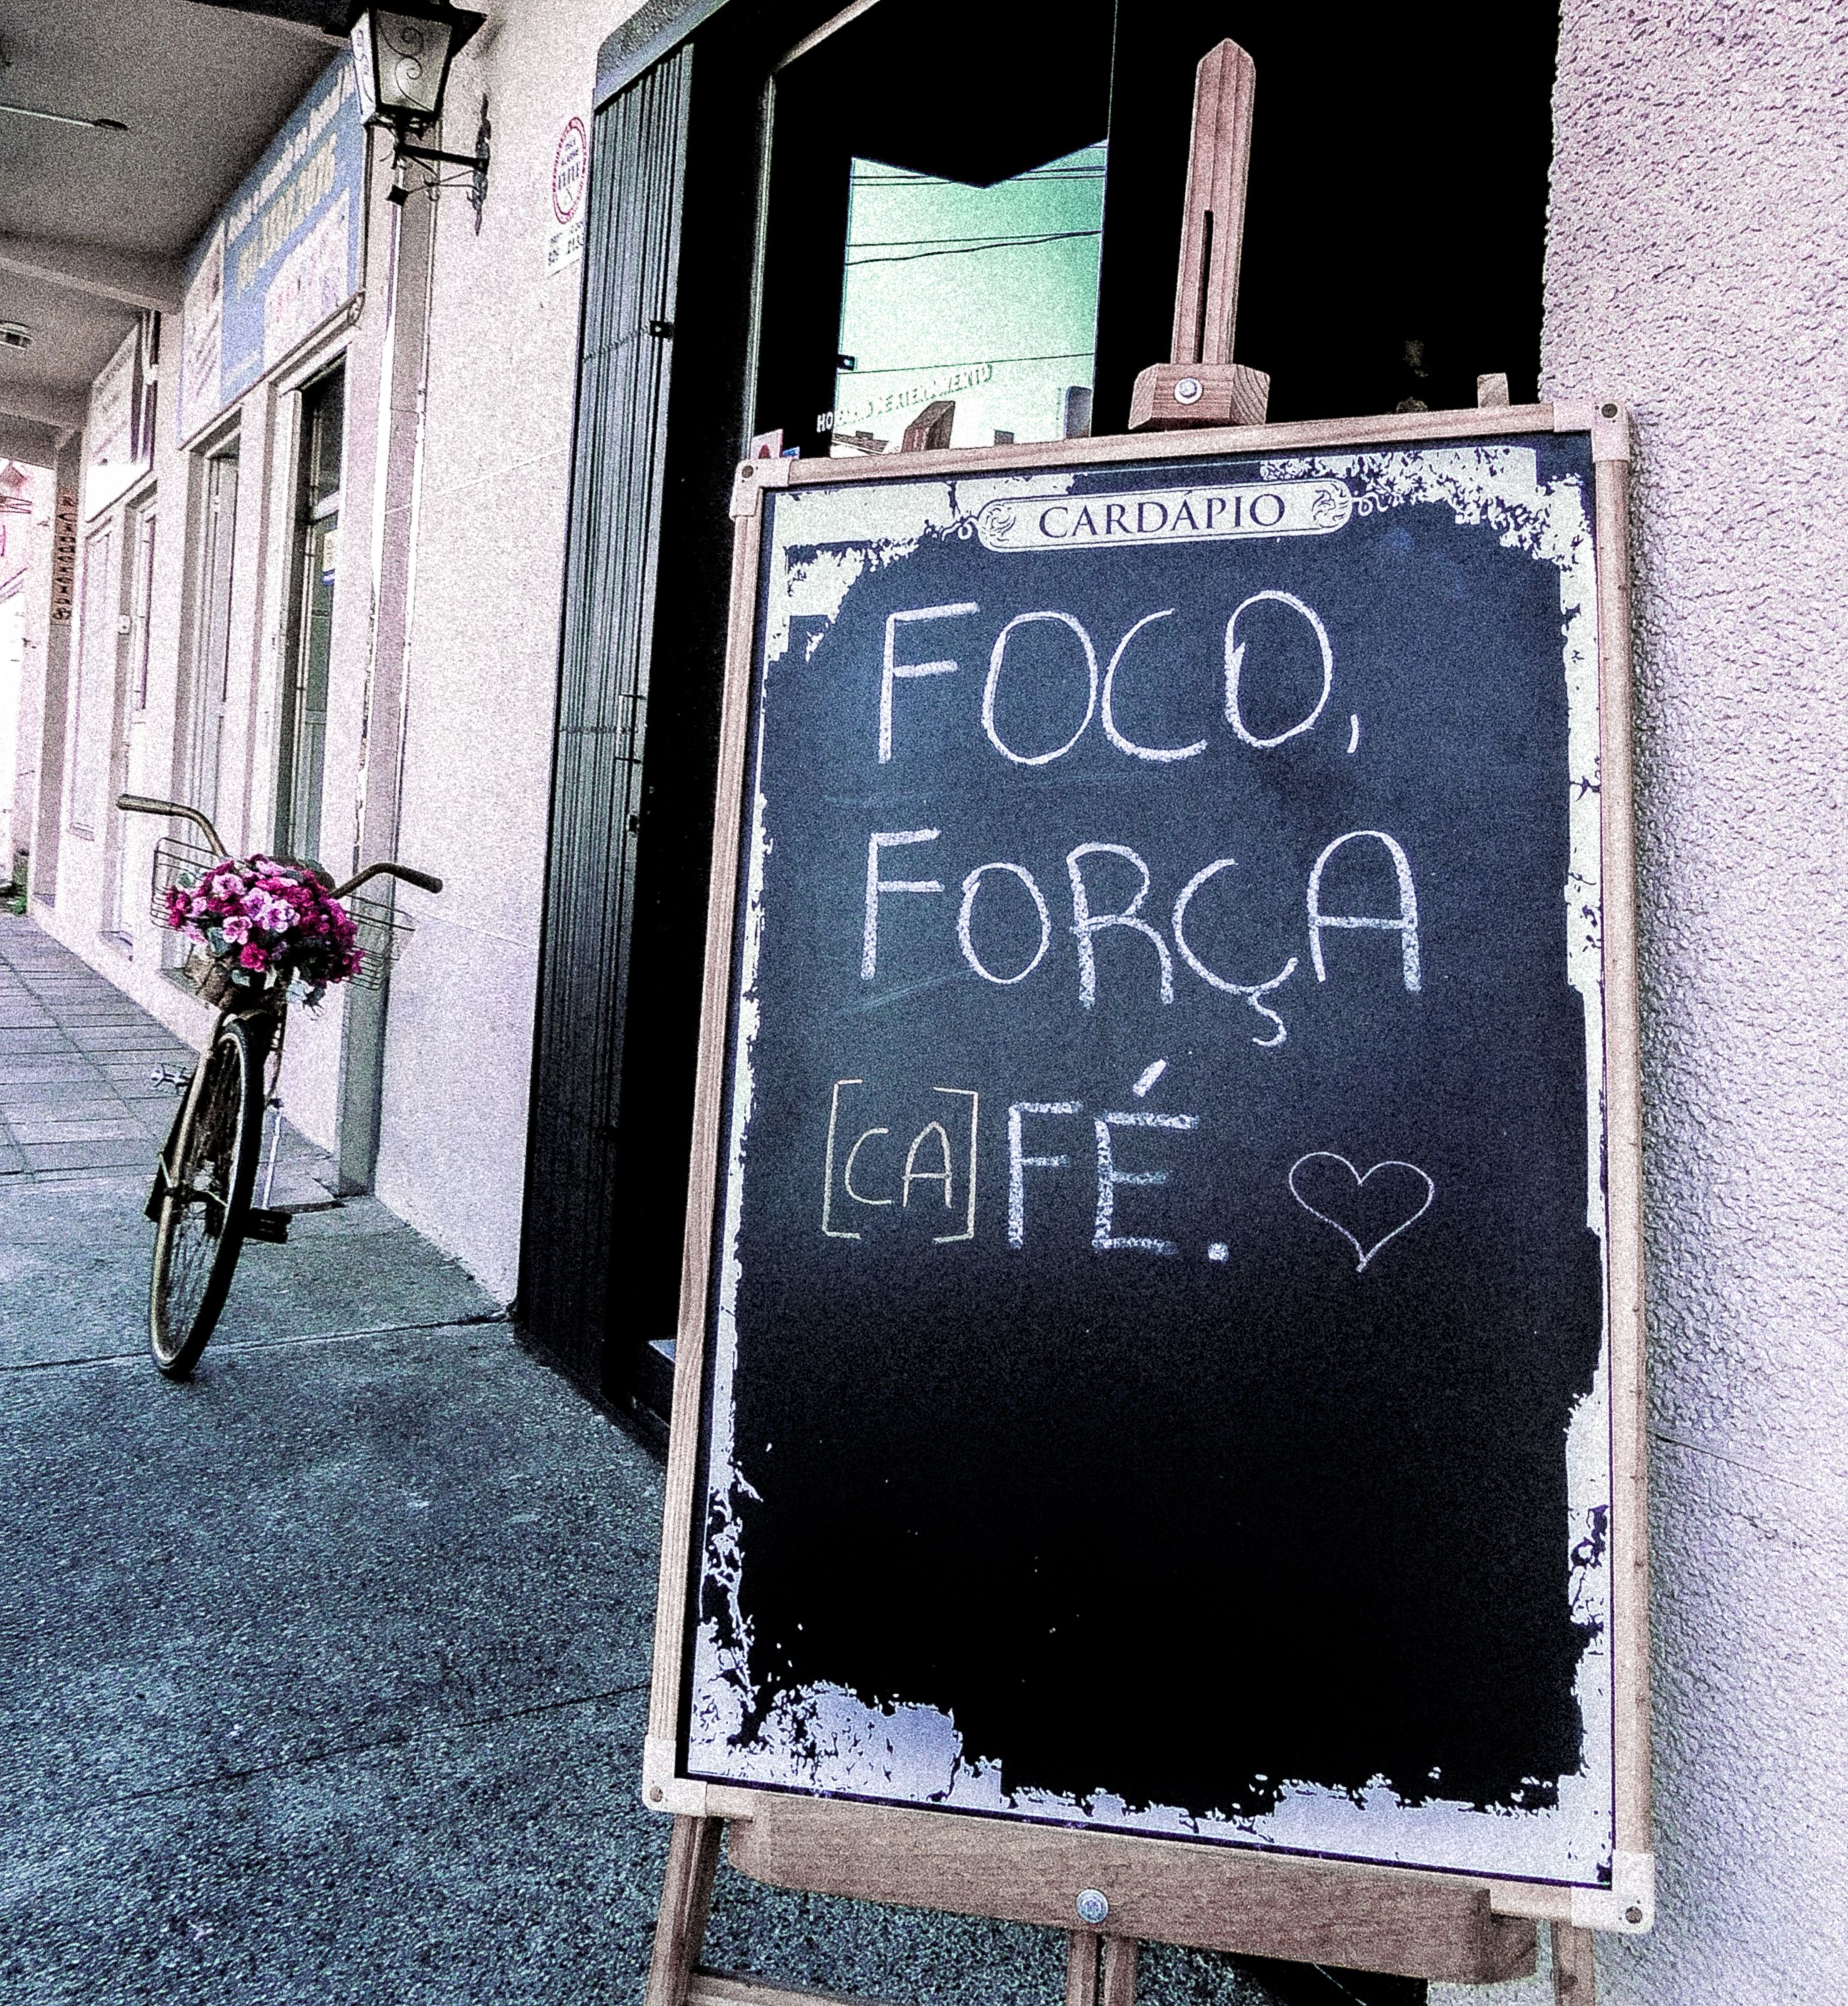 CARDÁPIO
FOCO,
FORÇA
[CA]FÉ.
HORÁRIO DE ATENDIMENTO